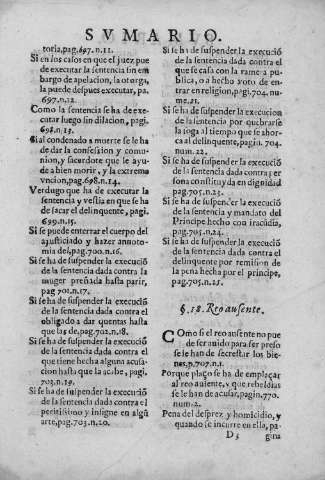 SVMARIO.
toria, pag. 697. n. 11.
Si en los casos en que el juez pue
de executar la sentencia sin em
bargo de apelacion, la otorga,
la puede despues executar, pa.
697. n. 12.
Como la sentencia se ha de exe-
cutar luego sin dilacion, pagi.
698. n. 13.
Si al condenado a muerte se le ha
de dar la confession y comu-
nion, y sacerdote que le ayu-
de a bien morir, y la extrema
vncion, pag. 698. n. 14.
Verdugo que ha de executar la
sentencia y vestia en que se ha
de sacar el delinquente, pagi.
699. n. 15.
Si se puede enterrar el cuerpo del
ajusticiado y hazer annoto-
mia del, pag. 700. n. 16.
Si se ha de suspender la execució
de la sentencia dada contra la
muger preñada hasta parir,
pag 701. n. 17.
Si se ha de suspender la execució
de la sentencia dada contra el
obligado a dar quentas hasta
que las de, pag. 702. n. 18.
Si se ha de suspender la execució
de la sentencia dada contra el
que tiene hecha alguna acusa-
cion hasta que la acabe, pagi.
703. n. 19.
Si se ha de suspender la execució
de la sentencia dada contra el
peritissimo y insigne en algũ
arte, pag. 703. n. 20.
Si se ha de suspender la execució
de la sentencia dada contra el
que se casa con la ramera pu-
blica, o a hecho voto de en-
trar en religion, pag. 704. nu-
me. 21.
Si se ha de suspender la execucion
de la sentencia por quebrarse
la soga al tiempo que se ahor-
ca al delinquente, pagin. 704.
num. 22.
Si se ha de suspender la execució
de la sentencia dada contra per
sona constituyda en dignidad
pag. 705. n. 23.
Si se ha de suspender la execució
de la sentencia y mandato del
Principe hecho con iracũdia,
pag. 705. n. 24.
Si se ha de suspender la execució
de la sentencia dada contra el
delinquente por remission de
la pena hecha por el principe,
pag. 705. n. 25.
§. 18. Reo ausente.
Como si el reo ausente no pue
de ser auido para ser preso
se le han de secrestar los bie-
nes, p. 707. n. 1.
Porque plaço se ha de emplaçar
al reo ausente, y que rebeldias
se le han de acusar, pagin. 770.
num. 2.
Pena del desprez y homicidio, y
quando se incurre en ella, pa-
D 3 gina